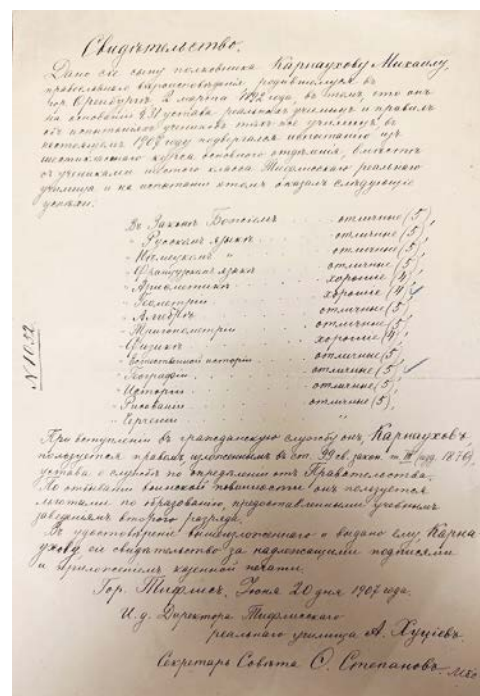 Свидѣтельство.
Дано сіе сыну полковника Карнаухову Михаилу,
православнаго вѣроисповѣданія, родившемуся въ
гор. Оренбургѣ 2 марта 1892 года, въ томъ, что онъ
на основаніи § 31 устава реальныхъ училищъ и правилъ
объ испытаніяхъ учениковъ тѣхъ-же училищъ, въ
настоящемъ 1907 году подвергался испытанію изъ
шестикласснаго курса основного отдѣленія, вмѣстѣ
съ учениками шестого класса Тифлисскаго реальнаго
училища и на испытаніи этомъ оказалъ слѣдующіе
успѣхи:
Въ Законѣ Божіемъ отличные (5),
" Русскомъ языкѣ отличные (5),
" Нѣмецкомъ " отличные (5),
" Французскомъ языкѣ отличные (5),
" Ариѳметикѣ хорошіе (4),
" Геометріи хорошіе (4),
" Алгебрѣ отличные (5),
" Тригонометріи отличные (5),
" Физикѣ хорошіе (4),
" Естественной исторіи отличные (5),
" Географіи отличные (5),
" Исторіи отличные (5),
" Рисованіи отличные (5),
" Черченіи "
№ 1032
При вступленіи въ гражданскую службу онъ, Карнауховъ,
пользуется правомъ изложеннымъ въ ст. 99 св. закон. т. III (изд. 1876),
устава о службѣ по опредѣленію отъ Правительства.
По отбыванію воинской повинности онъ пользуется
льготами по образованію, предоставленными учебнымъ
заведеніямъ второго разряда.
Въ удостовѣреніе вышеизложеннаго и выдано ему Карна-
ухову, сіе свидѣтельство за надлежащими подписями
и приложеніемъ казенной печати.
Гор. Тифлисъ. Іюня 20 дня 1907 года.
И. д. Директора Тифлисскаго
реальнаго училища А. Хуціевъ.
Секретарь Совѣта С. Степановъ.